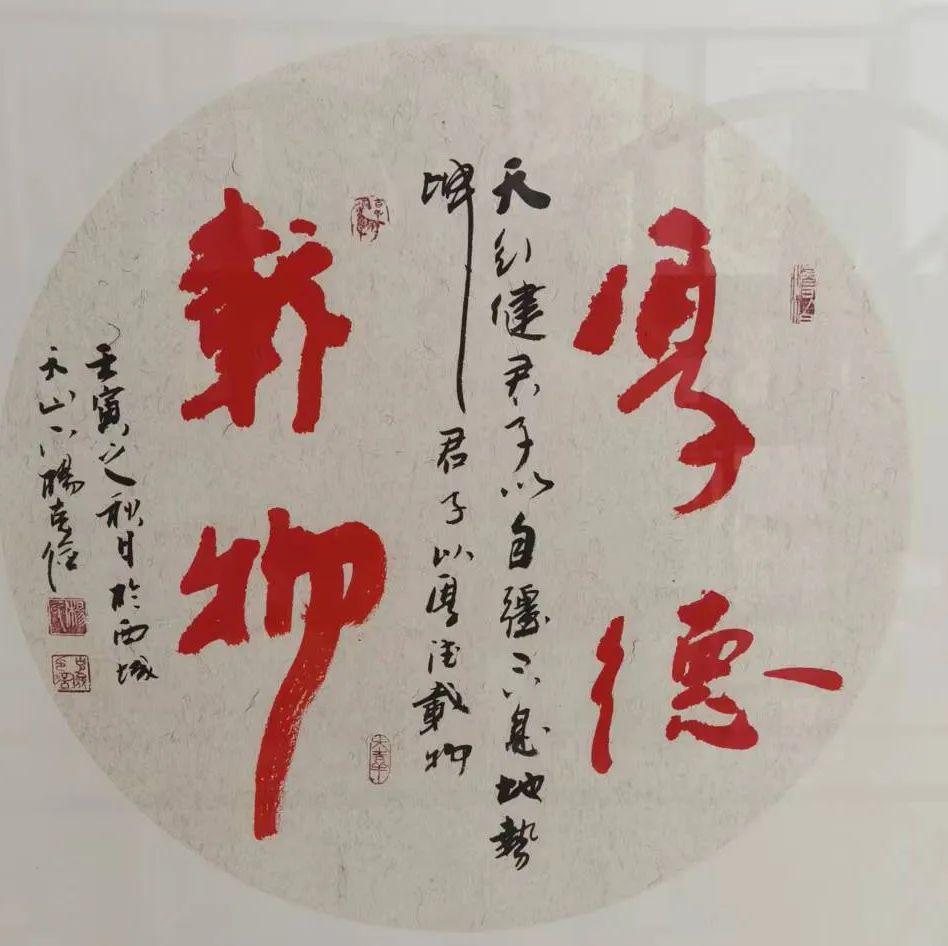 厚德
天行健君子以自彊不息地勢
坤君子以厚德载物
載物
壬寅之秋日於西城
天山下楊